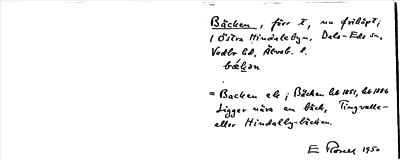 Bäcken, förr t, nu friköpt;
i Östra Hindalebyn, Dals-Eds sn,
Vedbo hd, Älvsb. l.
bäkan
= Backen ek; Bäcken hb 1881, hb 1886
Ligger nära en bäck, Tingvalla-
eller Hindalby-bäcken.
E 1950